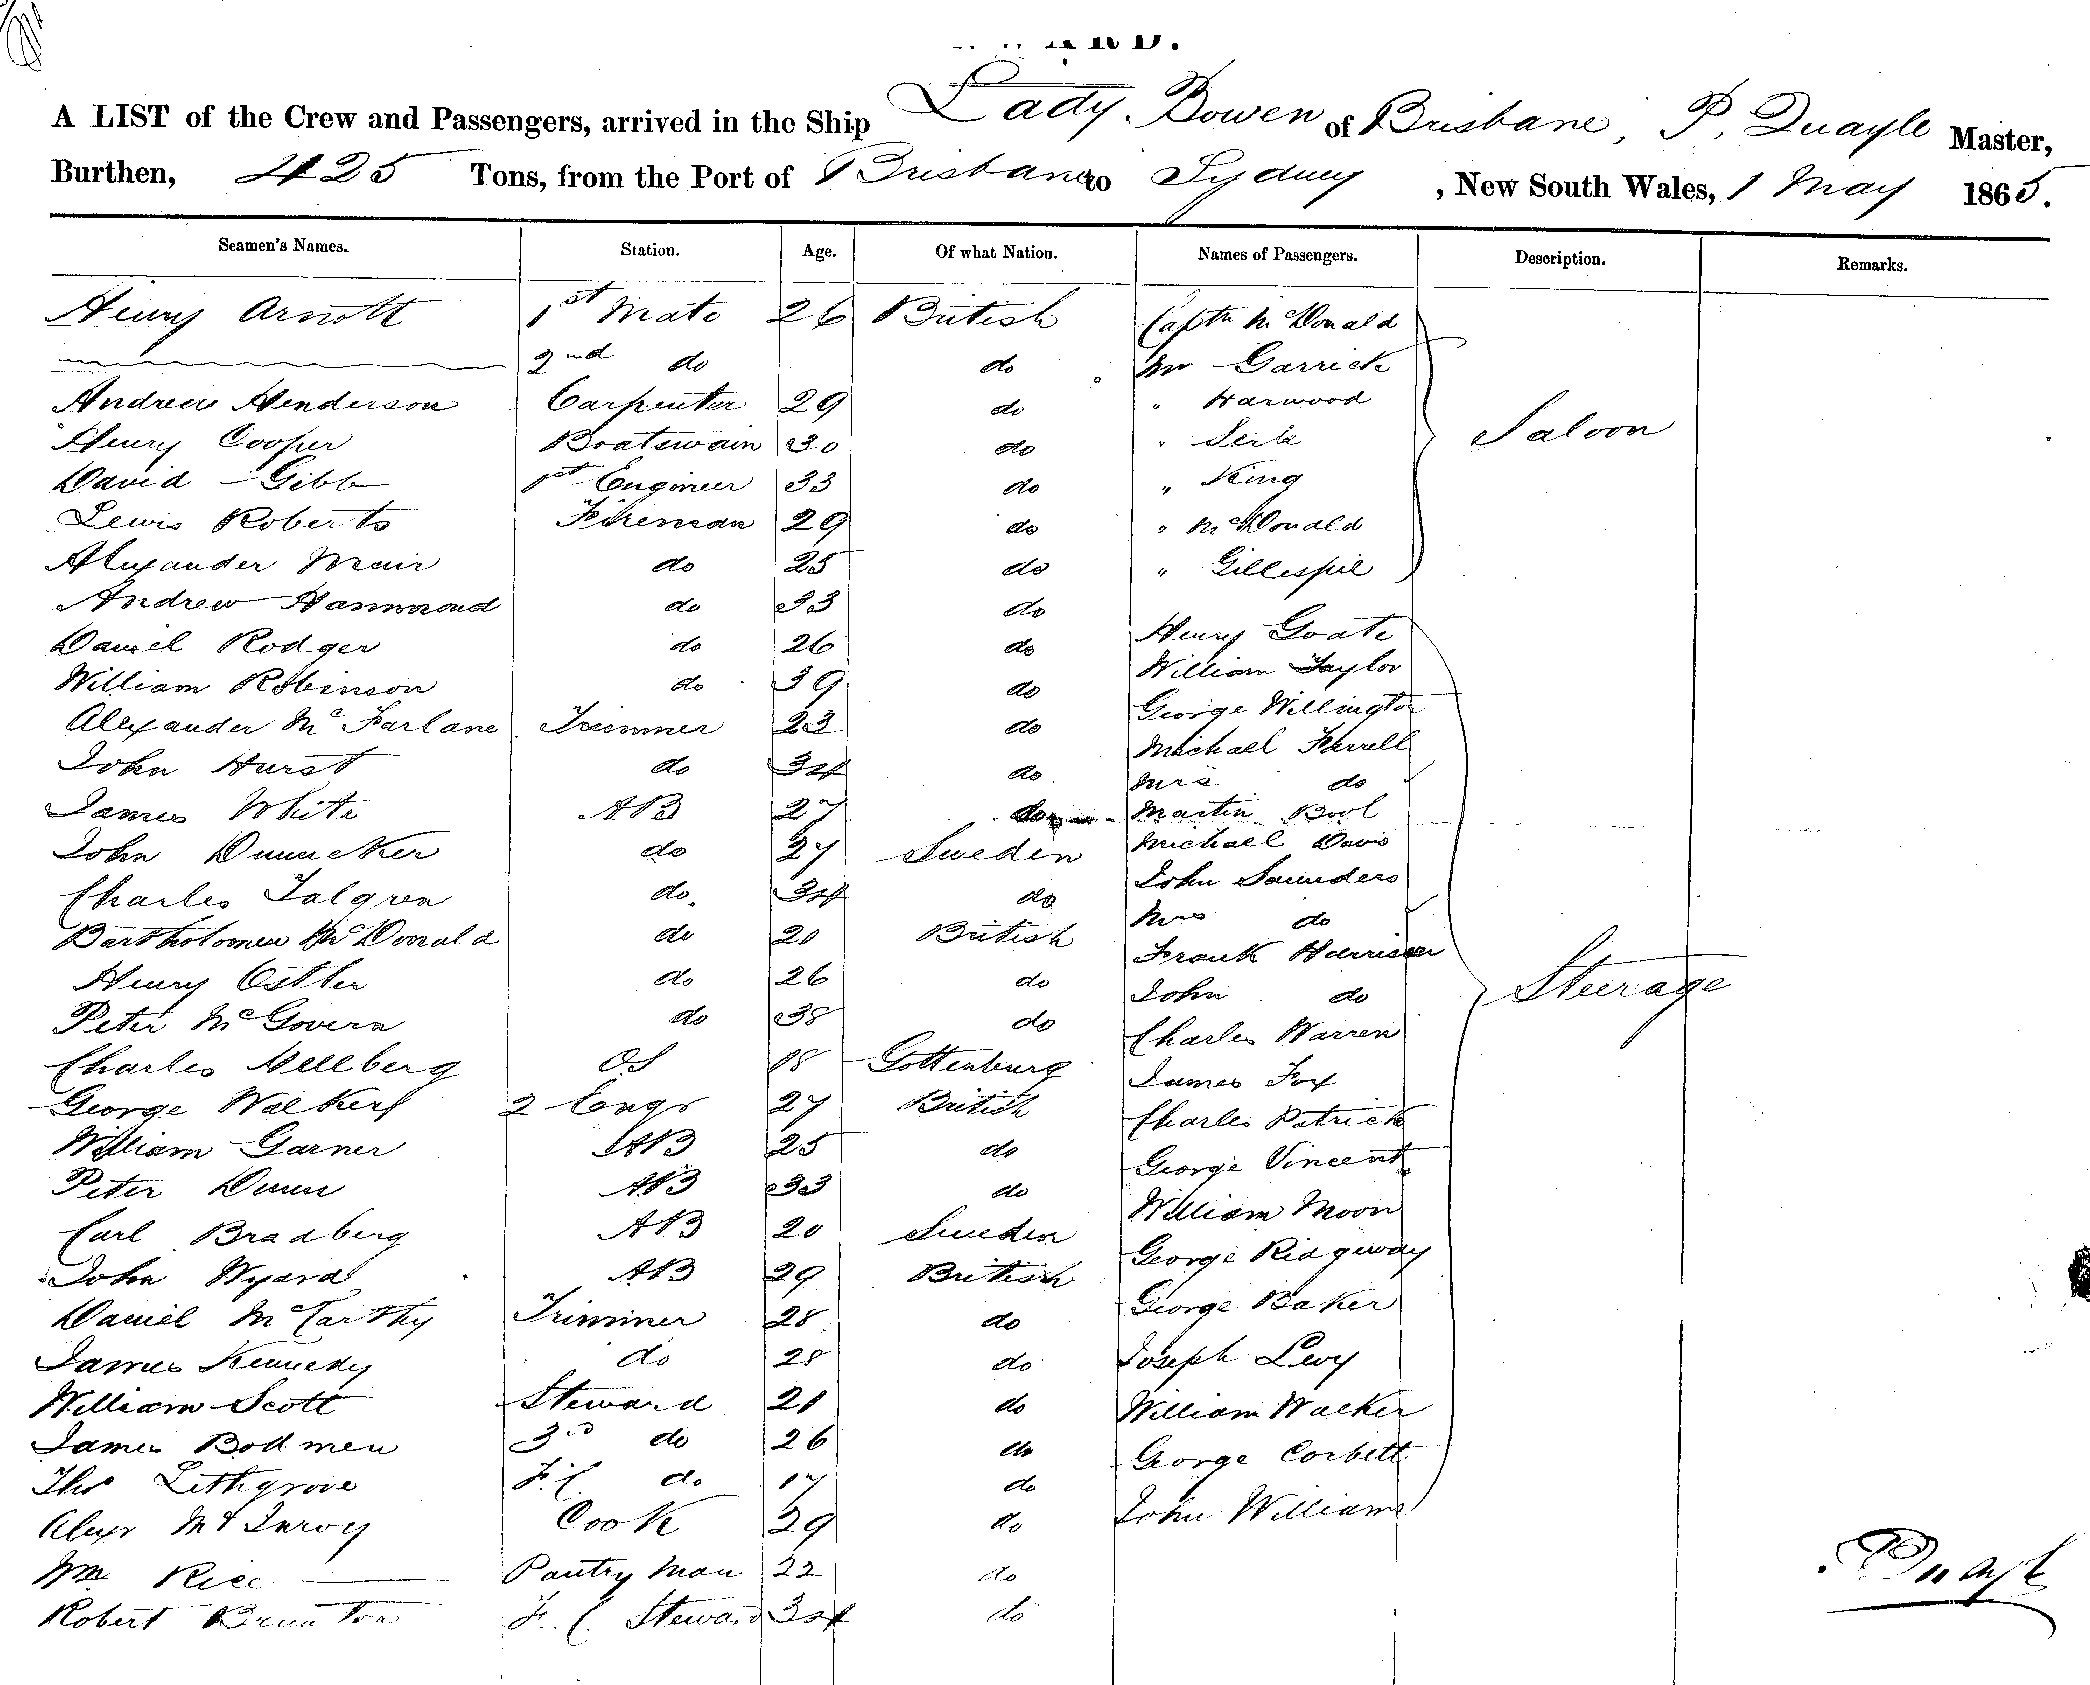 A LIST of the Crew and Passengers, arrived in the Ship Lady Bowen of Brisbane, P. Quayle Master,
Burthen, 425 Tons, from the Port of Brisbane to Sydney, New South Wales, 1 May 1865.
Seamen's Names. Station. Age. Of what Nation. Names of Passengers. Description. Remarks.
Henry Arnott 1st Mate 26 British Captn McDonald
2nd do do Mr Garrick
Andrew Henderson Carpenter 29 do " Harwood
Henry Cooper Boatswain 30 do " Saloon
David Gibb 1st Engineer 33 do " King
Lewis Roberts Fireman 29 do " McDonald
Alexander Muir do 25 do " Gillespie
Andrew Hammond do 33 do
Daniel Rodger do 26 do Henry Goate
William Robinson do 39 do William Taylor
Alexander McFarlane Trimmer 23 do George Willington
John Hurst do 34 do Michael Farrell
Mrs do
James White AB 27 do Martin Bool
John Dunncker do 27 Sweden Michael Davis
Charles Talgren do. 34 do John Saunders
Bartholomew McDonald do 20 British Mrs do
Henry Ostler do 26 do Frank Harrison
Peter McGovern do 38 do John do Steerage
Charles Mellberg OS 18 Gottenburg Charles Warren
James Fox
George Walker 2 Engr 27 British Charles Patrick
William Garner AB 25 do George Vincent
Peter Dunn AB 33 do William Moon
Carl Bradberg AB 20 Sweden George Ridgeway
John Wyard AB 29 British
Daniel McCarthy Trimmer 28 do George Baker
James Kennedy do 28 do Joseph Levy
William Scott Steward 21 do William Walker
James Bodmen 3rd do 26 do George Corbett
Thos Lithgrove F.C. do 17 do
Alexr Cook 39 do John Williams
Wm Rice Pantry Man 22 do P Quayle
Robert Brunton F.C. Steward 34 do